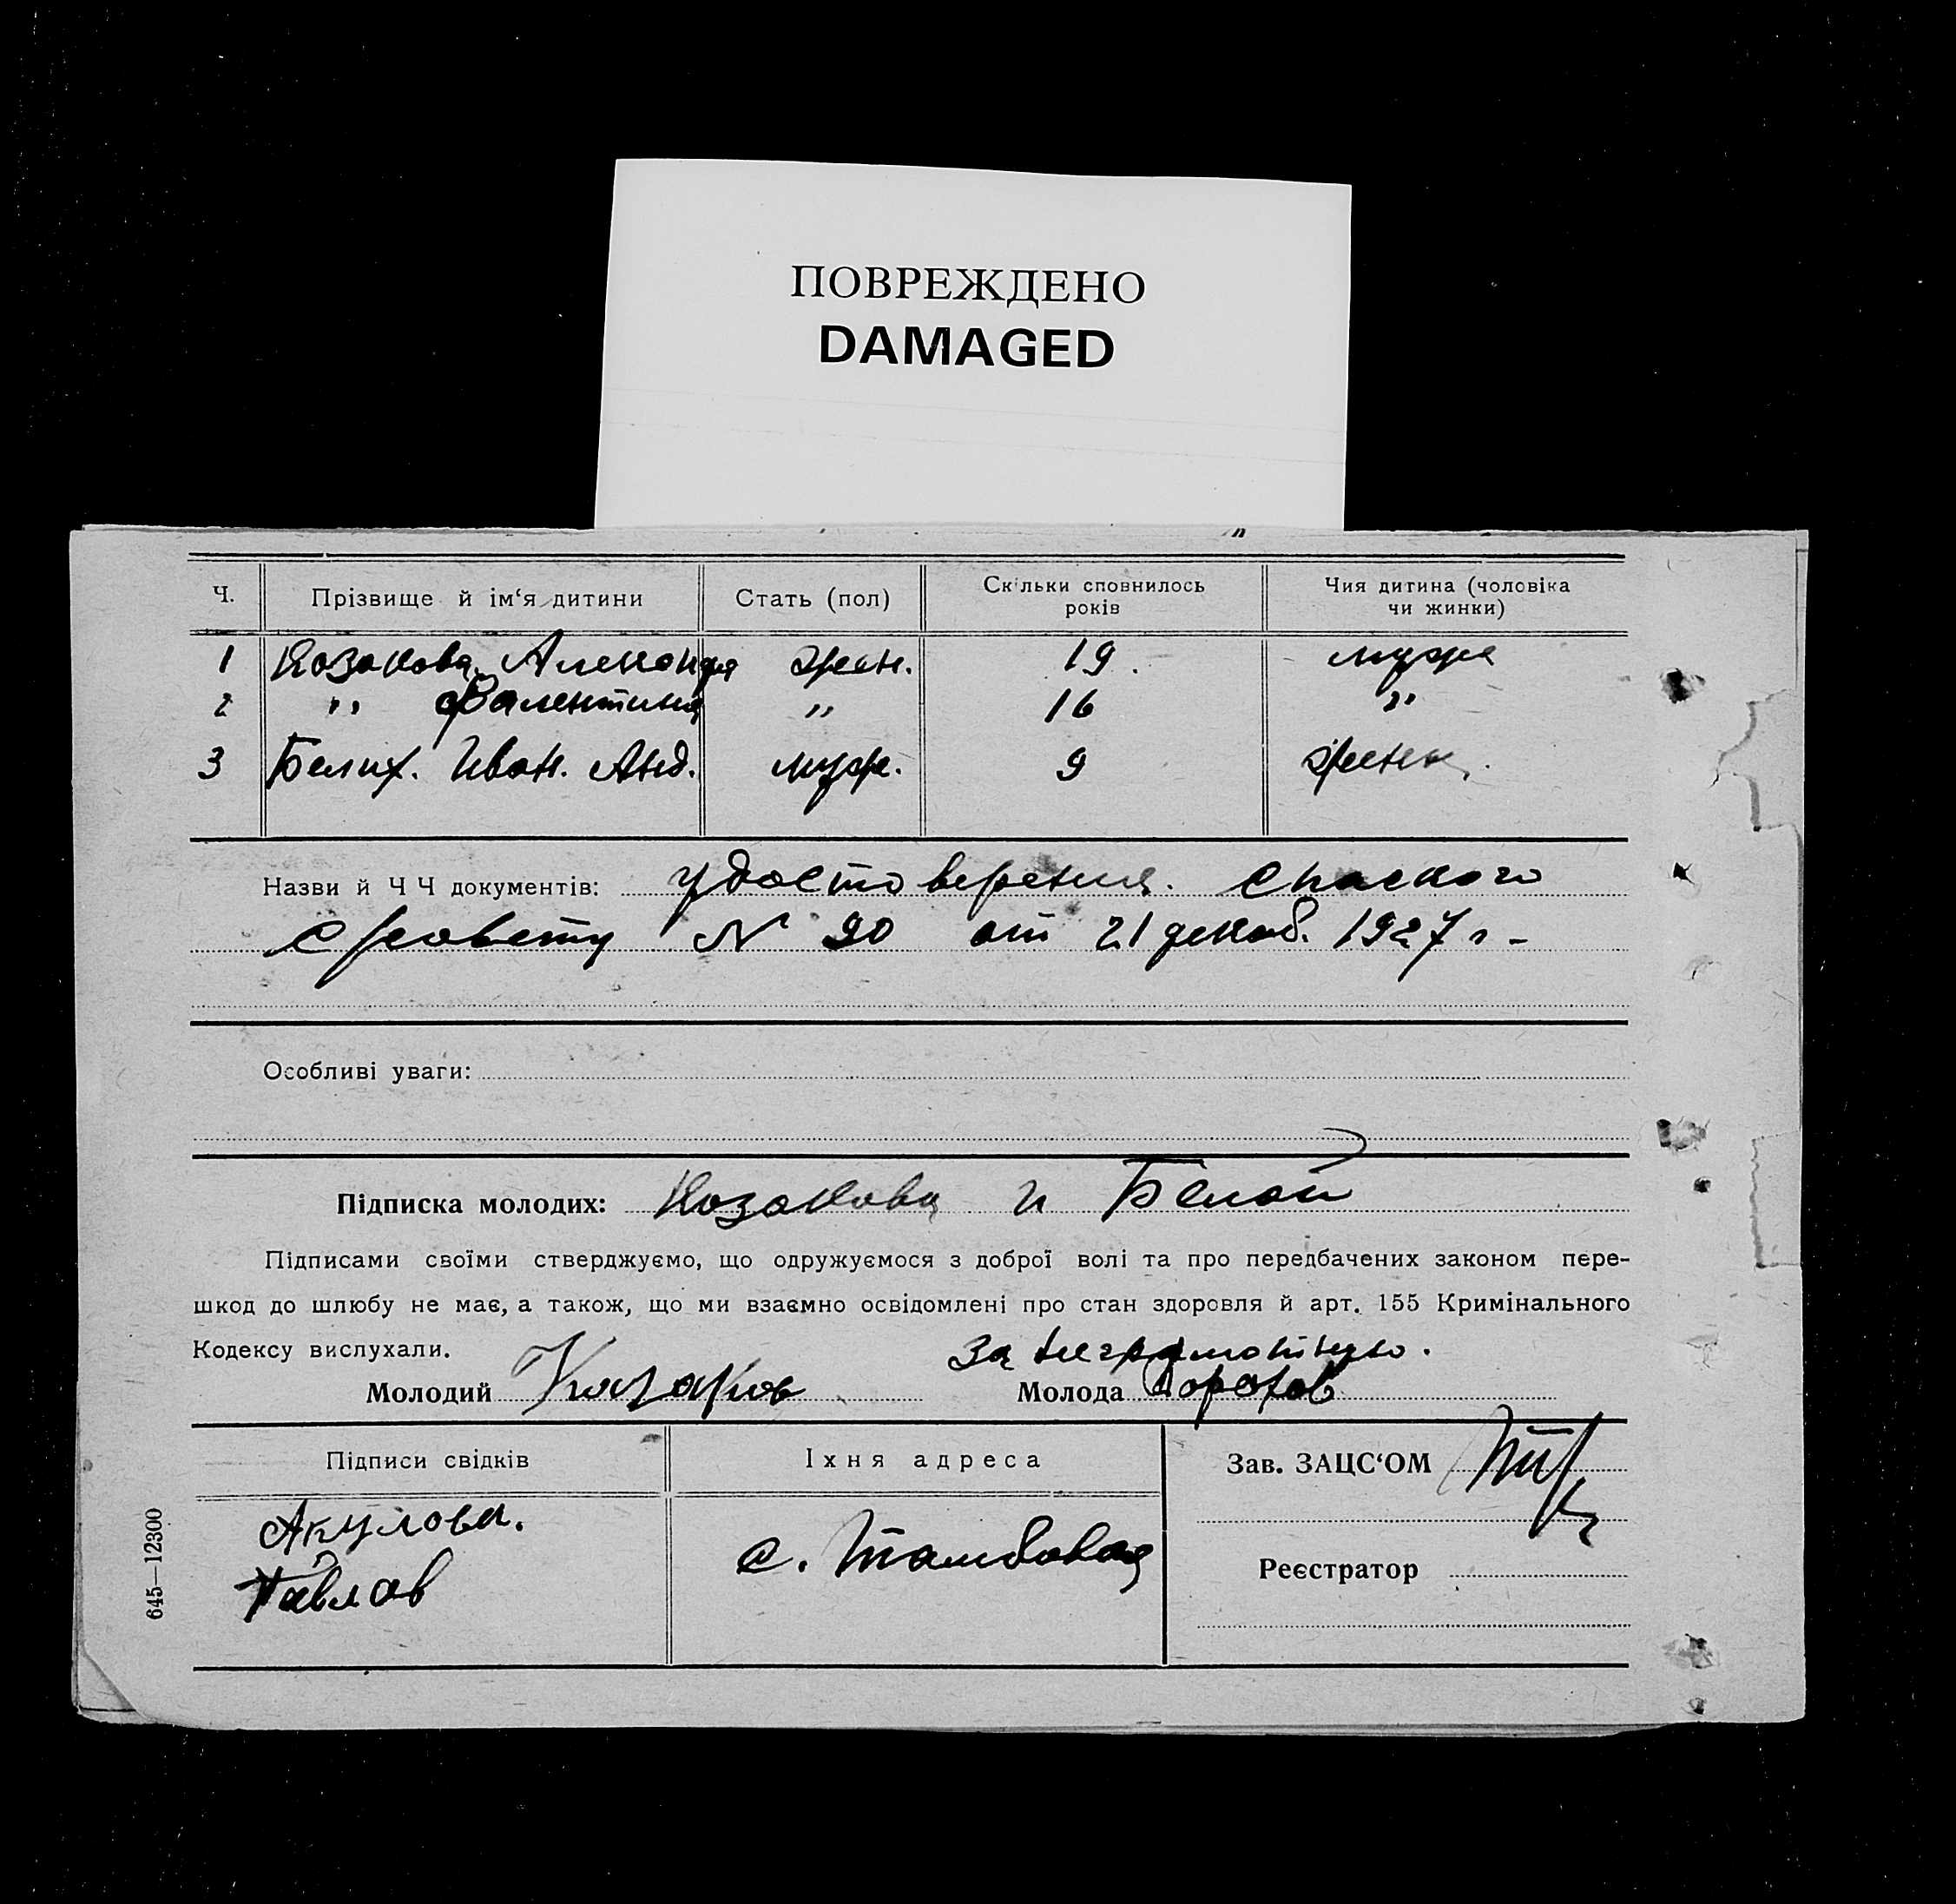 ПОВРЕЖДЕНО
DAMAGED
Ч. Прізвище й ім‘я дитини Стать (пол) Скільки сповнилось років Чия дитина (чоловіка чи жинки)
1 Козакова Александра жен. 19. мужа
2 " Валентина " 16 "
3 Белих. Иван. Анд. муж. 9 жены.
Назви й Ч Ч документів: удостоверения. Спаского
с/совету № 90 от 21 декаб. 1927 г -
Особливі уваги:
Підписка молодих: Козакова и Белой
Підписами своїми стверджуємо, що одружуємося з доброї волі та про передбачених законом пере-
шкод до шлюбу не має, а також, що ми взаємно освідомлені про стан здоровля й арт. 155 Кримінального
Кодексу вислухали.
за неграмотную.
Молодий Казаков Молода Дорохов
Підписи свідків Іхня адреса Зав. ЗАЦС‘ОМ
Акулова.
Павлов
с. Тамбовка
Реєстратор
645—12300